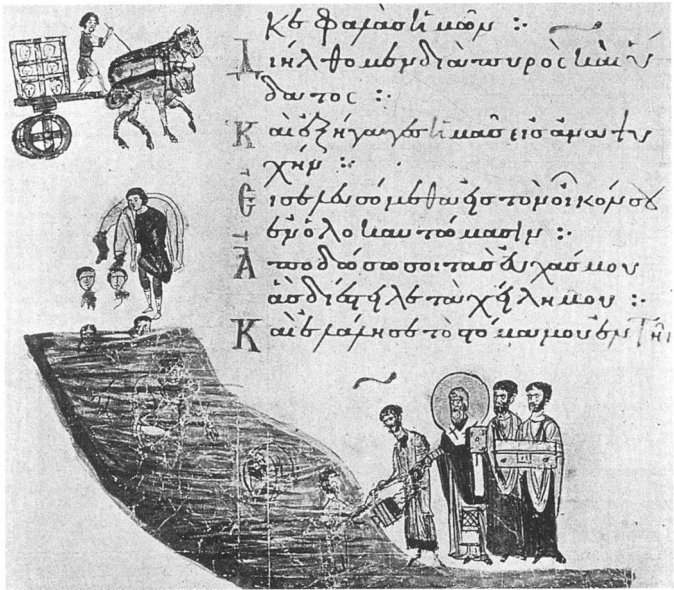 κεφαλὰς ἡμῶν :·
Διήλθομεν διὰ πυρὸς καὶ ὕ
δατος :·
Καὶ ἐξήγαγες ἡμᾶς εἰς ἀναψυ
χήν :·
Εἰσελευσόμεθα εἰς τὸν οἶκόν σου
ἐν ὁλοκαυτώμασιν :·
Ἀποδώσω σοι τὰς εὐχάς μου
ἃς διέστειλε τὰ χείλη μου :·
Καὶ ἐλάλησε τὸ στόμα μου ἐν τῆι